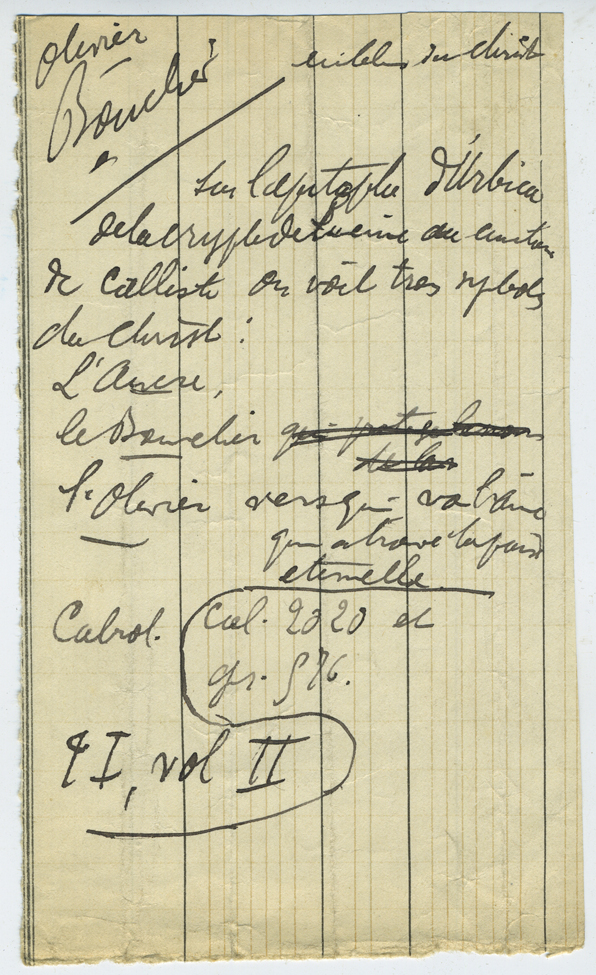 Olivier
Bouclier
du Christ
sur l'épitaphe d'Urbica
de la crypte de Lucine du
de Calliste on voit trois symboles
du Christ :
L'Ancre,
le Bouclier qui
de
l'Olivier vers qui va l'âme
qui a trouvé la paix
eternelle
Cabrol. col. 2020 et
gr. 576.
t I, vol II